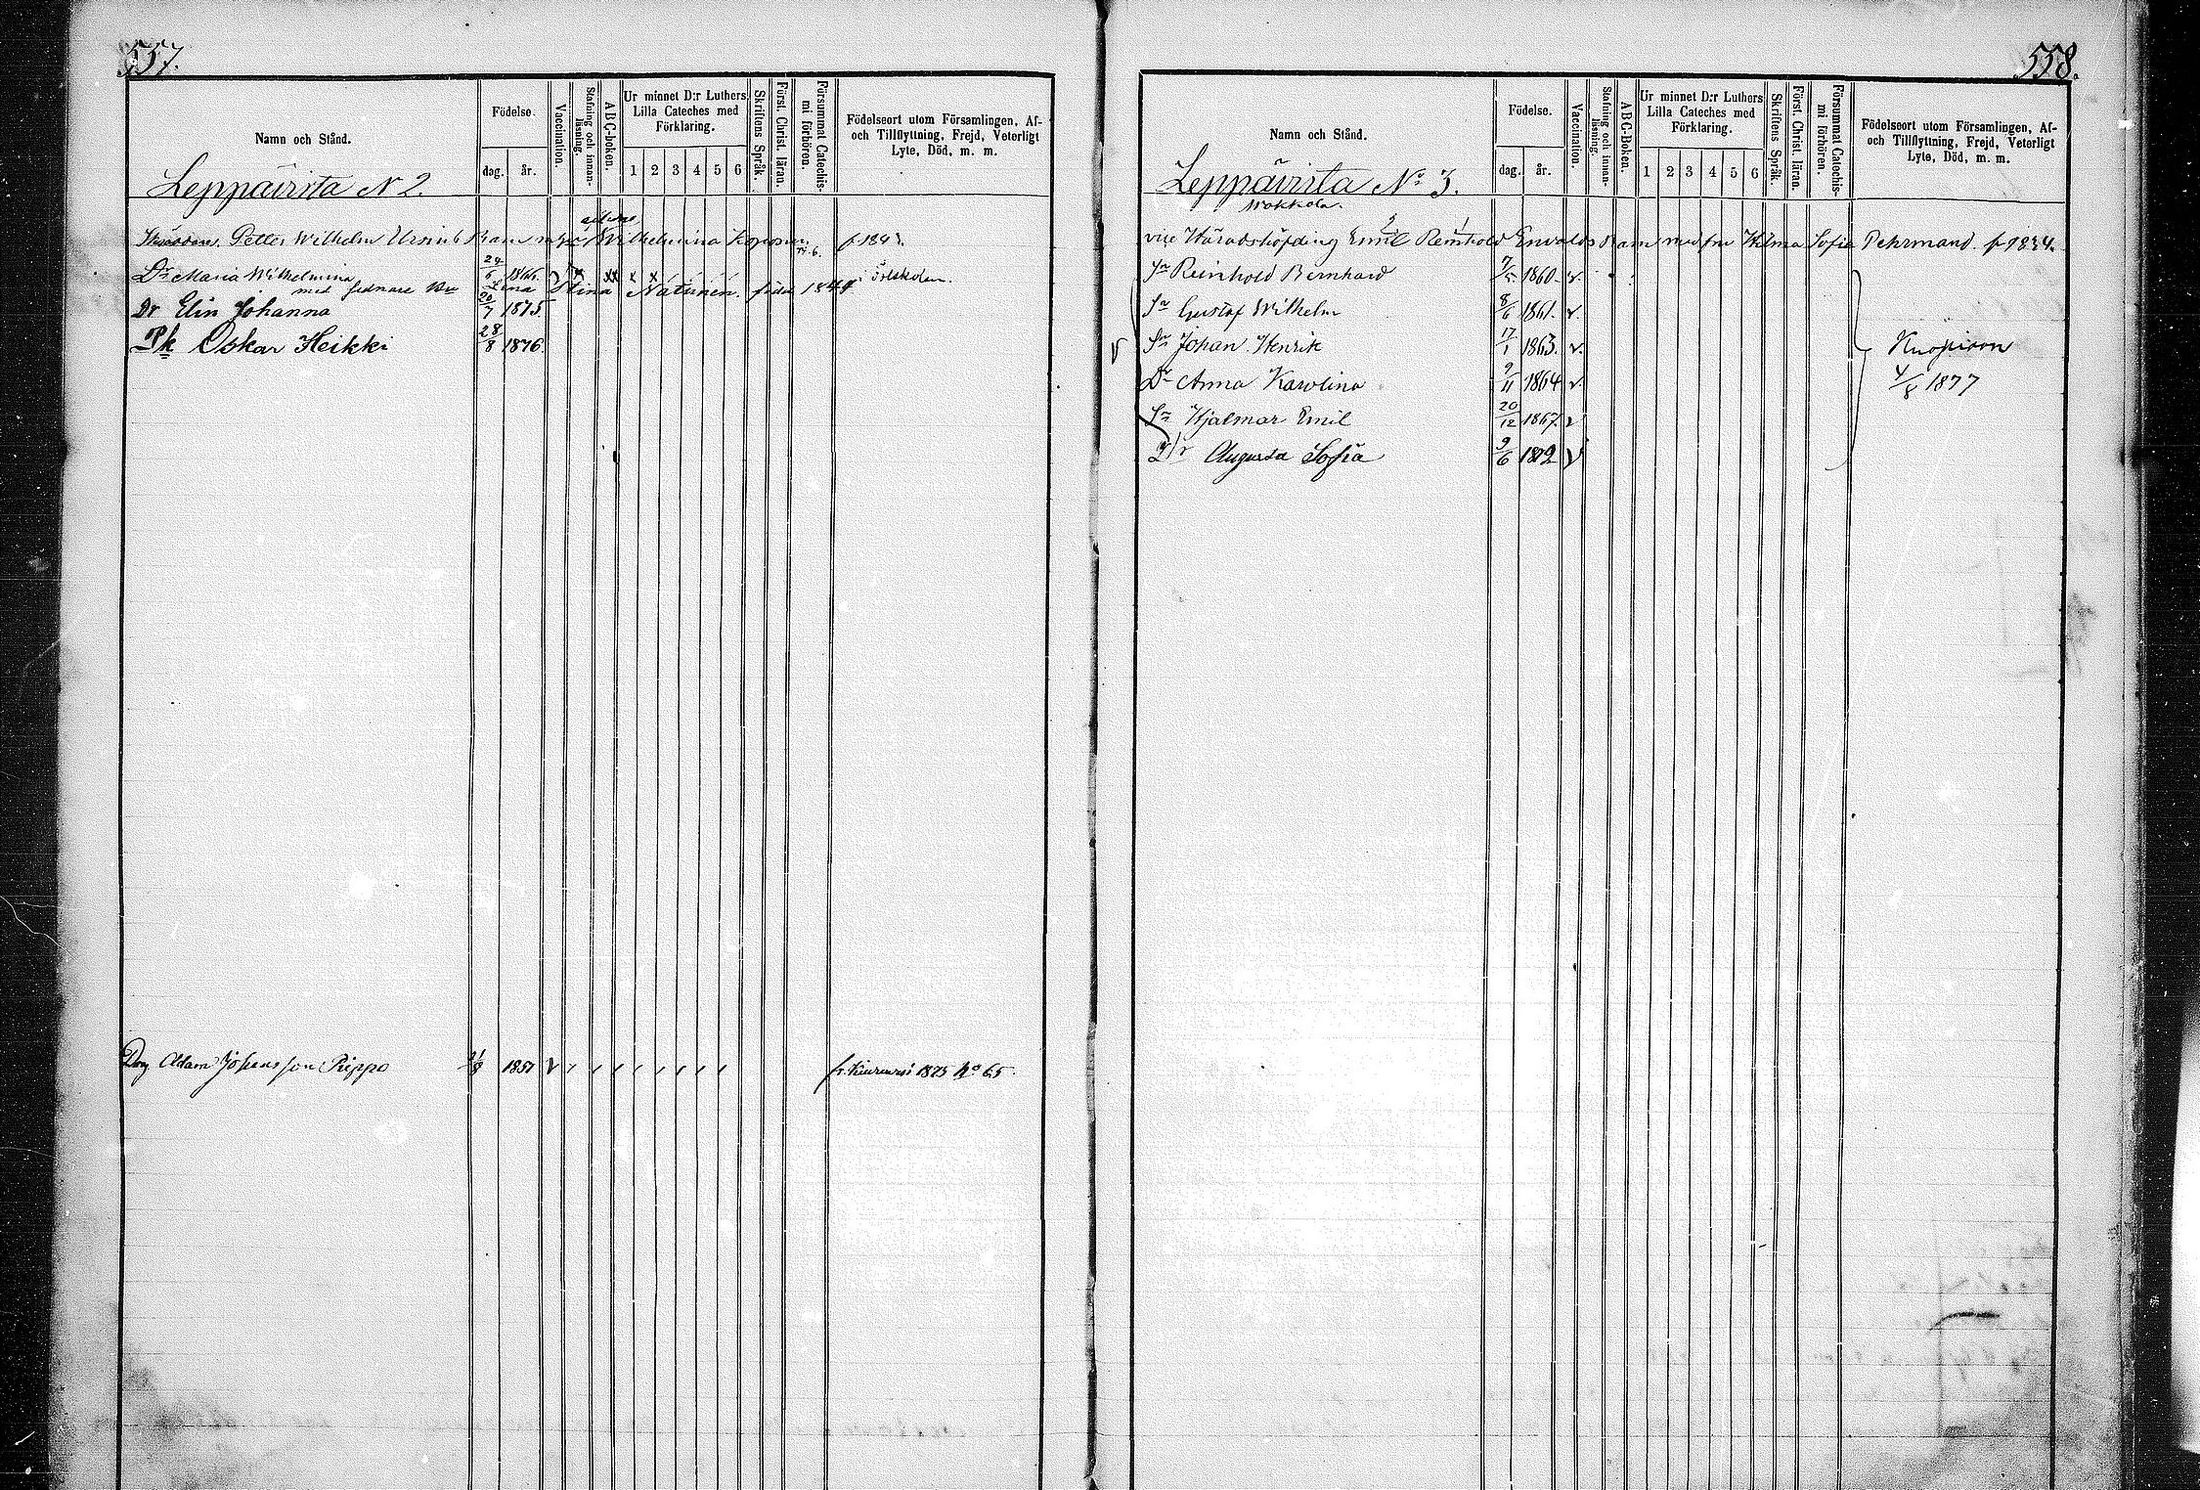 557.
Namn och Stånd.
Födelse.
dag. år.
Vaccination.
Stafning och innanläsning.
ABC-boken.
Ur minnet D:r Luthers Lilla Cateches med Förklaring.
1 2 3 4 5 6
Skriftens Språk.
Först. Christ. läran.
Försummat Catechismi förhören.
Födelseort utom Församlingen, Af- och Tillflyttning, Frejd, Veterligt Lyte, Död, m. m.
Leppävirta N 2.
Petter Wilhelm Ursinus Barn Wilhelmina f. 1843.
Dr Maria Wilhelmina 24/6 1866
med sednare Lena Stina Natunen. 1844
Dr Elin Johanna 20/7 1875
Pk Oskar Heikki 28/8 1876
Drg Adam Johansson Rieppo 21/8 1851 fr. Kiuruvesi 1875 No 65.
558.
Namn och Stånd.
Födelse.
dag. år.
Vaccination.
Stafning och innanläsning.
ABC-boken.
Ur minnet D:r Luthers Lilla Cateches med Förklaring.
1 2 3 4 5 6
Skriftens Språk.
Först. Christ. läran.
Försummat Catechismi förhören.
Födelseort utom Församlingen, Af- och Tillflyttning, Frejd, Veterligt Lyte, Död, m. m.
Leppävirta No 3.
Mokkola.
vice Häradshöfding Emil Reinhold Envalds Barn med fru Hilma Sofia Pehrmand. f 1834.
Sn Reinhold Bernhard 7/5 1860. v.
Sn Gustaf Wilhelm 8/6 1861. v.
Sn Johan Henrik 17/1 1863. v.
Dr Anna Karolina 9/11 1864 v.
Sn Hjalmar Emil 20/12 1867. v
Dr Augusta Sofia 9/6 1872 v
Kuopioon
4/8 1877